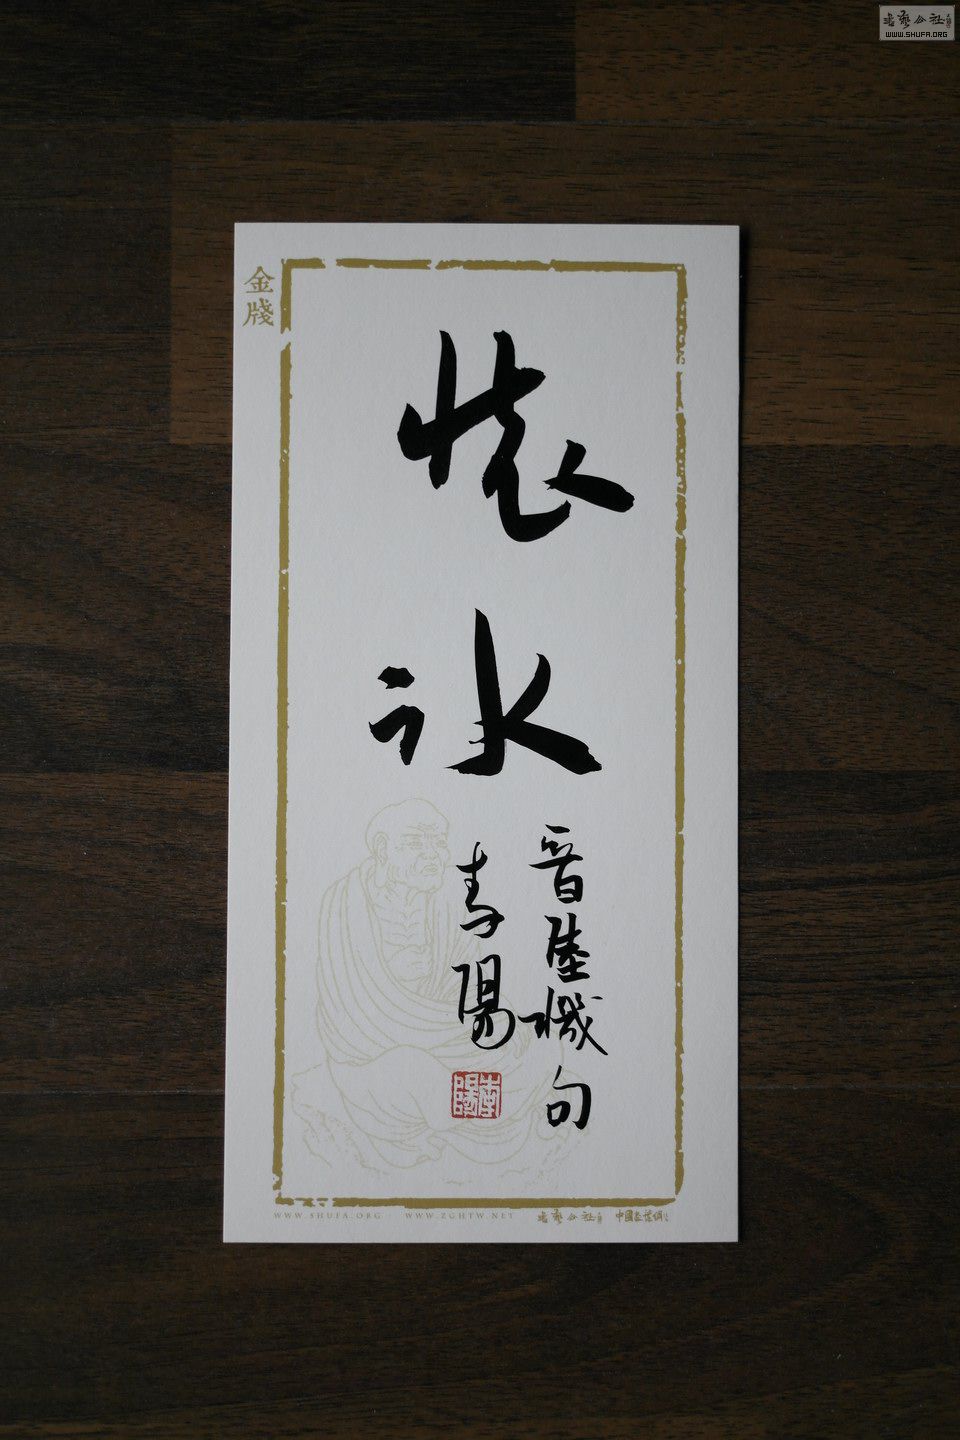 書藝公社
WWW.SHUFA.ORG
金牋
懷
冰
晉陸機句
李陽
WWW.SHUFA.ORG WWW.ZGHTW.NET 書藝公社